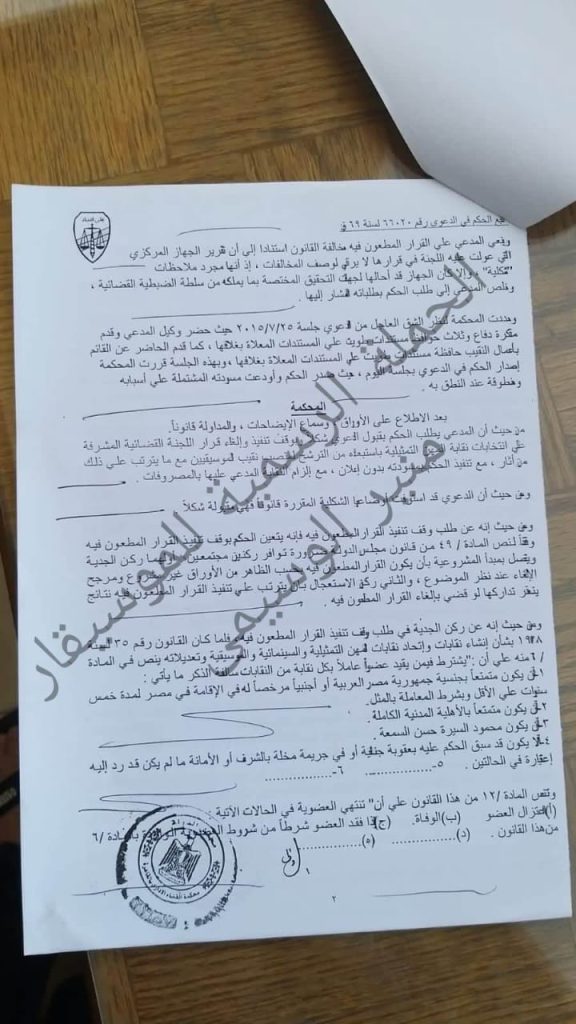 تابع الحكم في الدعوى رقم ٦٦٠٢٠ لسنة ٦٩ ق
وينعى المدعي علي القرار المطعون فيه مخالفة القانون استنادا إلى أن تقرير الجهاز المركزي
التي عولت عليه اللجنة في قرارها لا يرقي لوصف المخالفات ، إذ أنها مجرد ملاحظات
"شكلية" ، وإن كان الجهاز قد أحالها لجهات التحقيق المختصة بما يملكه من سلطة الضبطية القضائية ،
وخلص المدعي إلى طلب الحكم بطلباته المشار إليها .
وحددت المحكمة لنظر الشق العاجل من الدعوي جلسة ٢٠١٥/٧/٢٥ حيث حضر وكيل المدعي وقدم
مذكرة دفاع وثلاث حوافظ مستندات طويت علي المستندات المعلاة بغلافها ، كما قدم الحاضر عن القائم
بأعمال النقيب حافظة مستندات طويت علي المستندات المعلاة بغلافها، وبهذه الجلسة قررت المحكمة
إصدار الحكم في الدعوي بجلسة اليوم ، حيث صدر الحكم وأودعت مسودته المشتملة علي أسبابه
ومنطوقة عند النطق به .
المحكمة
بعد الاطلاع على الأوراق ، وسماع الإيضاحات ، والمداولة قانوناً.
من حيث أن المدعي يطلب الحكم بقبول الدعوي شكلاً وبوقف تنفيذ وإلغاء قرار اللجنة القضائية المشرفة
علي انتخابات نقابة المهن التمثيلية باستبعاده من الترشح لمنصب نقيب الموسيقيين مع ما يترتب علي ذلك
من أثار ، مع تنفيذ الحكم بمسودته بدون إعلان ، مع إلزام النقابة المدعي عليها بالمصروفات .
ومن حيث أن الدعوي قد استوفت أوضاعها الشكلية المقررة قانوناً فهي مقبولة شكلاً
ومن حيث إنه عن طلب وقف تنفيذ القرار المطعون فيه فإنه يتعين الحكم بوقف تنفيذ القرار المطعون فيه
وفقاً لنص المادة / ٤٩ من قانون مجلس الدولة ضرورة توافر ركنين مجتمعين، أولهما ركن الجدية
ويتصل بمبدأ المشروعية بأن يكون القرار المطعون فيه بحسب الظاهر من الأوراق غير مشروع ومرجح
الإلغاء عند نظر الموضوع ، والثاني ركن الاستعجال بأن يترتب علي تنفيذ القرار المطعون فيه نتائج
يتعذر تداركها لو قضي بإلغاء القرار المطعون فيه .
ومن حيث إنه عن ركن الجدية في طلب وقف تنفيذ القرار المطعون فيه ، فلما كان القانون رقم ٣٥ لسنة
١٩٧٨ بشأن إنشاء نقابات وإتحاد نقابات المهن التمثيلية والسينمائية والموسيقية وتعديلاته ينص في المادة
/ ٦ منه علي أن :"يشترط فيمن يقيد عضواً عاملاً بكل نقابة من النقابات سالفة الذكر ما يأتي :
١-أن يكون متمتعاً بجنسية جمهورية مصر العربية أو أجنبياً مرخصاً له في الإقامة في مصر لمدة خمس
سنوات علي الأقل وبشرط المعاملة بالمثل.
٢-أن يكون متمتعاً بالأهلية المدنية الكاملة.
٣-أن يكون محمود السيرة حسن السمعة.
٤-ألا يكون قد سبق الحكم عليه بعقوبة جناية أو في جريمة مخلة بالشرف أو الأمانة ما لم يكن قد رد إليه
إعتباره في الحالتين . ٥-............... ٦-...............
وتنص المادة /١٢ من هذا القانون علي أن" تنتهي العضوية في الحالات الآتية :
(أ)اعتزال العضو (ب)الوفاة. (ج)إذا فقد العضو شرطاً من شروط العضوية الواردة بالمادة /٦
من هذا القانون . (د)............... (ه)...............
٢
الحملة الرسمية للموسيقار
منير الوسيمي